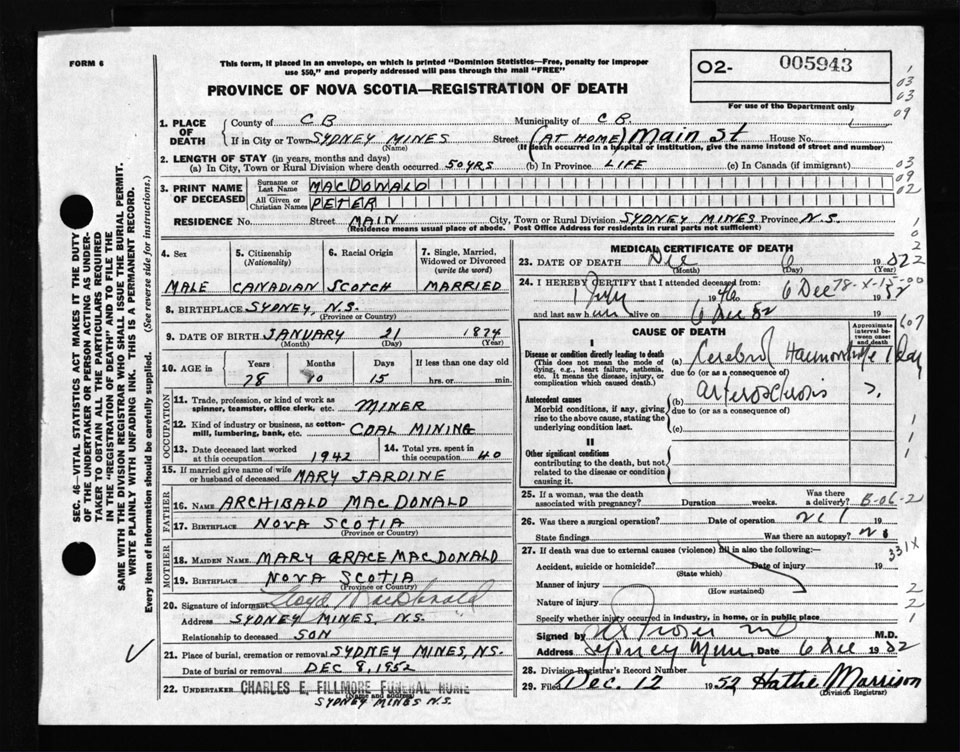 FORM 6
This form, if placed in an envelope, on which is printed "Dominion Statistics—Free, penalty for improper
use $50," and properly addressed will pass through the mail "FREE"
PROVINCE OF NOVA SCOTIA—REGISTRATION OF DEATH
02- 005943
For use of the Department only
1
03
03
09
SEC. 46—VITAL STATISTICS ACT MAKES IT THE DUTY
OF THE UNDERTAKER OR PERSON ACTING AS UNDER-
TAKER TO OBTAIN ALL THE PARTICULARS REQUIRED
IN THE "REGISTRATION OF DEATH" AND TO FILE THE
SAME WITH THE DIVISION REGISTRAR WHO SHALL ISSUE THE BURIAL PERMIT.
WRITE PLAINLY WITH UNFADING INK. THIS IS A PERMANENT RECORD.
Every item of information should be carefully supplied. (See reverse side for instructions.)
1. PLACE OF DEATH
County of C B Municipality of C B.
If in City or Town SYDNEY MINES Street (AT HOME) Main St House No.
(Name) (If death occurred in a hospital or institution, give the name instead of street and number)
2. LENGTH OF STAY (in years, months and days)
(a) In City, Town or Rural Division where death occurred 50 YRS (b) In Province LIFE (c) In Canada (if immigrant)
03
09
02
3. PRINT NAME OF DECEASED
Surname or Last Name MACDONALD
All Given or Christian Names PETER
RESIDENCE No. Street MAIN City, Town or Rural Division SYDNEY MINES Province N.S.
(Residence means usual place of abode. Post Office Address for residents in rural parts not sufficient)
1
0
2
4. Sex 5. Citizenship (Nationality) 6. Racial Origin 7. Single, Married, Widowed or Divorced (write the word)
MALE CANADIAN SCOTCH MARRIED
8. BIRTHPLACE SYDNEY, N.S.
(Province or Country)
9. DATE OF BIRTH JANUARY 21 1874
(Month) (Day) (Year)
10. AGE in Years Months Days If less than one day old
78 10 15 hrs. or min.
OCCUPATION
11. Trade, profession, or kind of work as
spinner, teamster, office clerk, etc. MINER
12. Kind of industry or business, as cotton-
mill, lumbering, bank, etc. COAL MINING
13. Date deceased last worked
at this occupation 1942
14. Total yrs. spent in
this occupation 40
15. If married give name of wife
or husband of deceased MARY JARDINE
FATHER
16. Name ARCHIBALD MACDONALD
17. Birthplace NOVA SCOTIA
(Province or Country)
MOTHER
18. Maiden Name MARY GRACE MACDONALD
19. Birthplace NOVA SCOTIA
(Province or Country)
20. Signature of informant Lloyd MacDonald
Address SYDNEY MINES, N.S.
Relationship to deceased SON
21. Place of burial, cremation or removal SYDNEY MINES, N.S.
Date of burial or removal DEC 8, 1952
22. UNDERTAKER CHARLES E. FILLMORE FUNERAL HOME
(Name and address)
SYDNEY MINES N.S.
MEDICAL CERTIFICATE OF DEATH
23. DATE OF DEATH Dec 6 1952
(Month) (Day) (Year)
2
24. I HEREBY CERTIFY that I attended deceased from:
1 July 1946 6 Dec 1952
78-X-15-00
and last saw him alive on 6 Dec 52
607
CAUSE OF DEATH
Approximate interval between onset and death
I
Disease or condition directly leading to death
(This does not mean the mode of
dying, e.g., heart failure, asthenia,
etc. It means the disease, injury, or
complication which caused death.)
(a) Cerebral Haemorrhage 1 Day
due to (or as a consequence of)
Antecedent causes
Morbid conditions, if any, giving
rise to the above cause, stating the
underlying condition last.
(b) Arteriosclerosis ?
due to (or as a consequence of)
(c)
1
1
1
II
Other significant conditions
contributing to the death, but not
related to the disease or condition
causing it.
25. If a woman, was the death
associated with pregnancy? Duration weeks. Was there a delivery?
B-06-2
26. Was there a surgical operation? Date of operation 19
State findings Was there an autopsy? no
331X
27. If death was due to external causes (violence) fill in also the following:—
Accident, suicide or homicide? Date of injury 19
(State which)
Manner of injury
(How sustained)
2
Nature of injury
2
Specify whether injury occurred in industry, in home, or in public place
1
Signed by M.D.
Address Sydney Mines Date 6 Dec 1952
28. Division Registrar's Record Number
29. Filed Dec. 12 1952 Hattie Morrison
(Division Registrar)